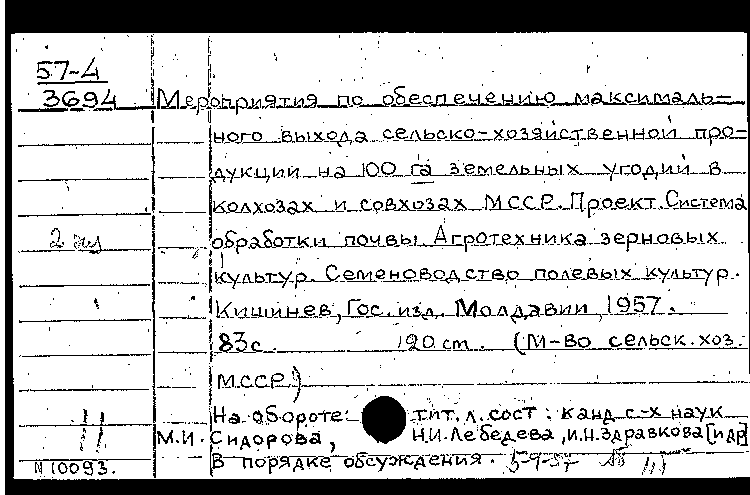 57-4
3694 Мероприятия по обеспечению максималь-
ного выхода сельско-хозяйственной про-
дукции на 100 га земельных угодий в
колхозах и совхозах МССР. Проект. Система
2 экз обработки почвы Агротехника зерновых
культур. Семеноводство полевых культур.
Кишинев, Гос. изд. Молдавии, 1957.
83с. 120 см. (М-во сельск. хоз.
МССР)
На обороте: тит. л. сост: канд с-х наук
М.И. Сидорова, Н.И. Лебедева, И.Н. Здравкова [и др]
N 10093. В порядке обсуждения. 5-9-57